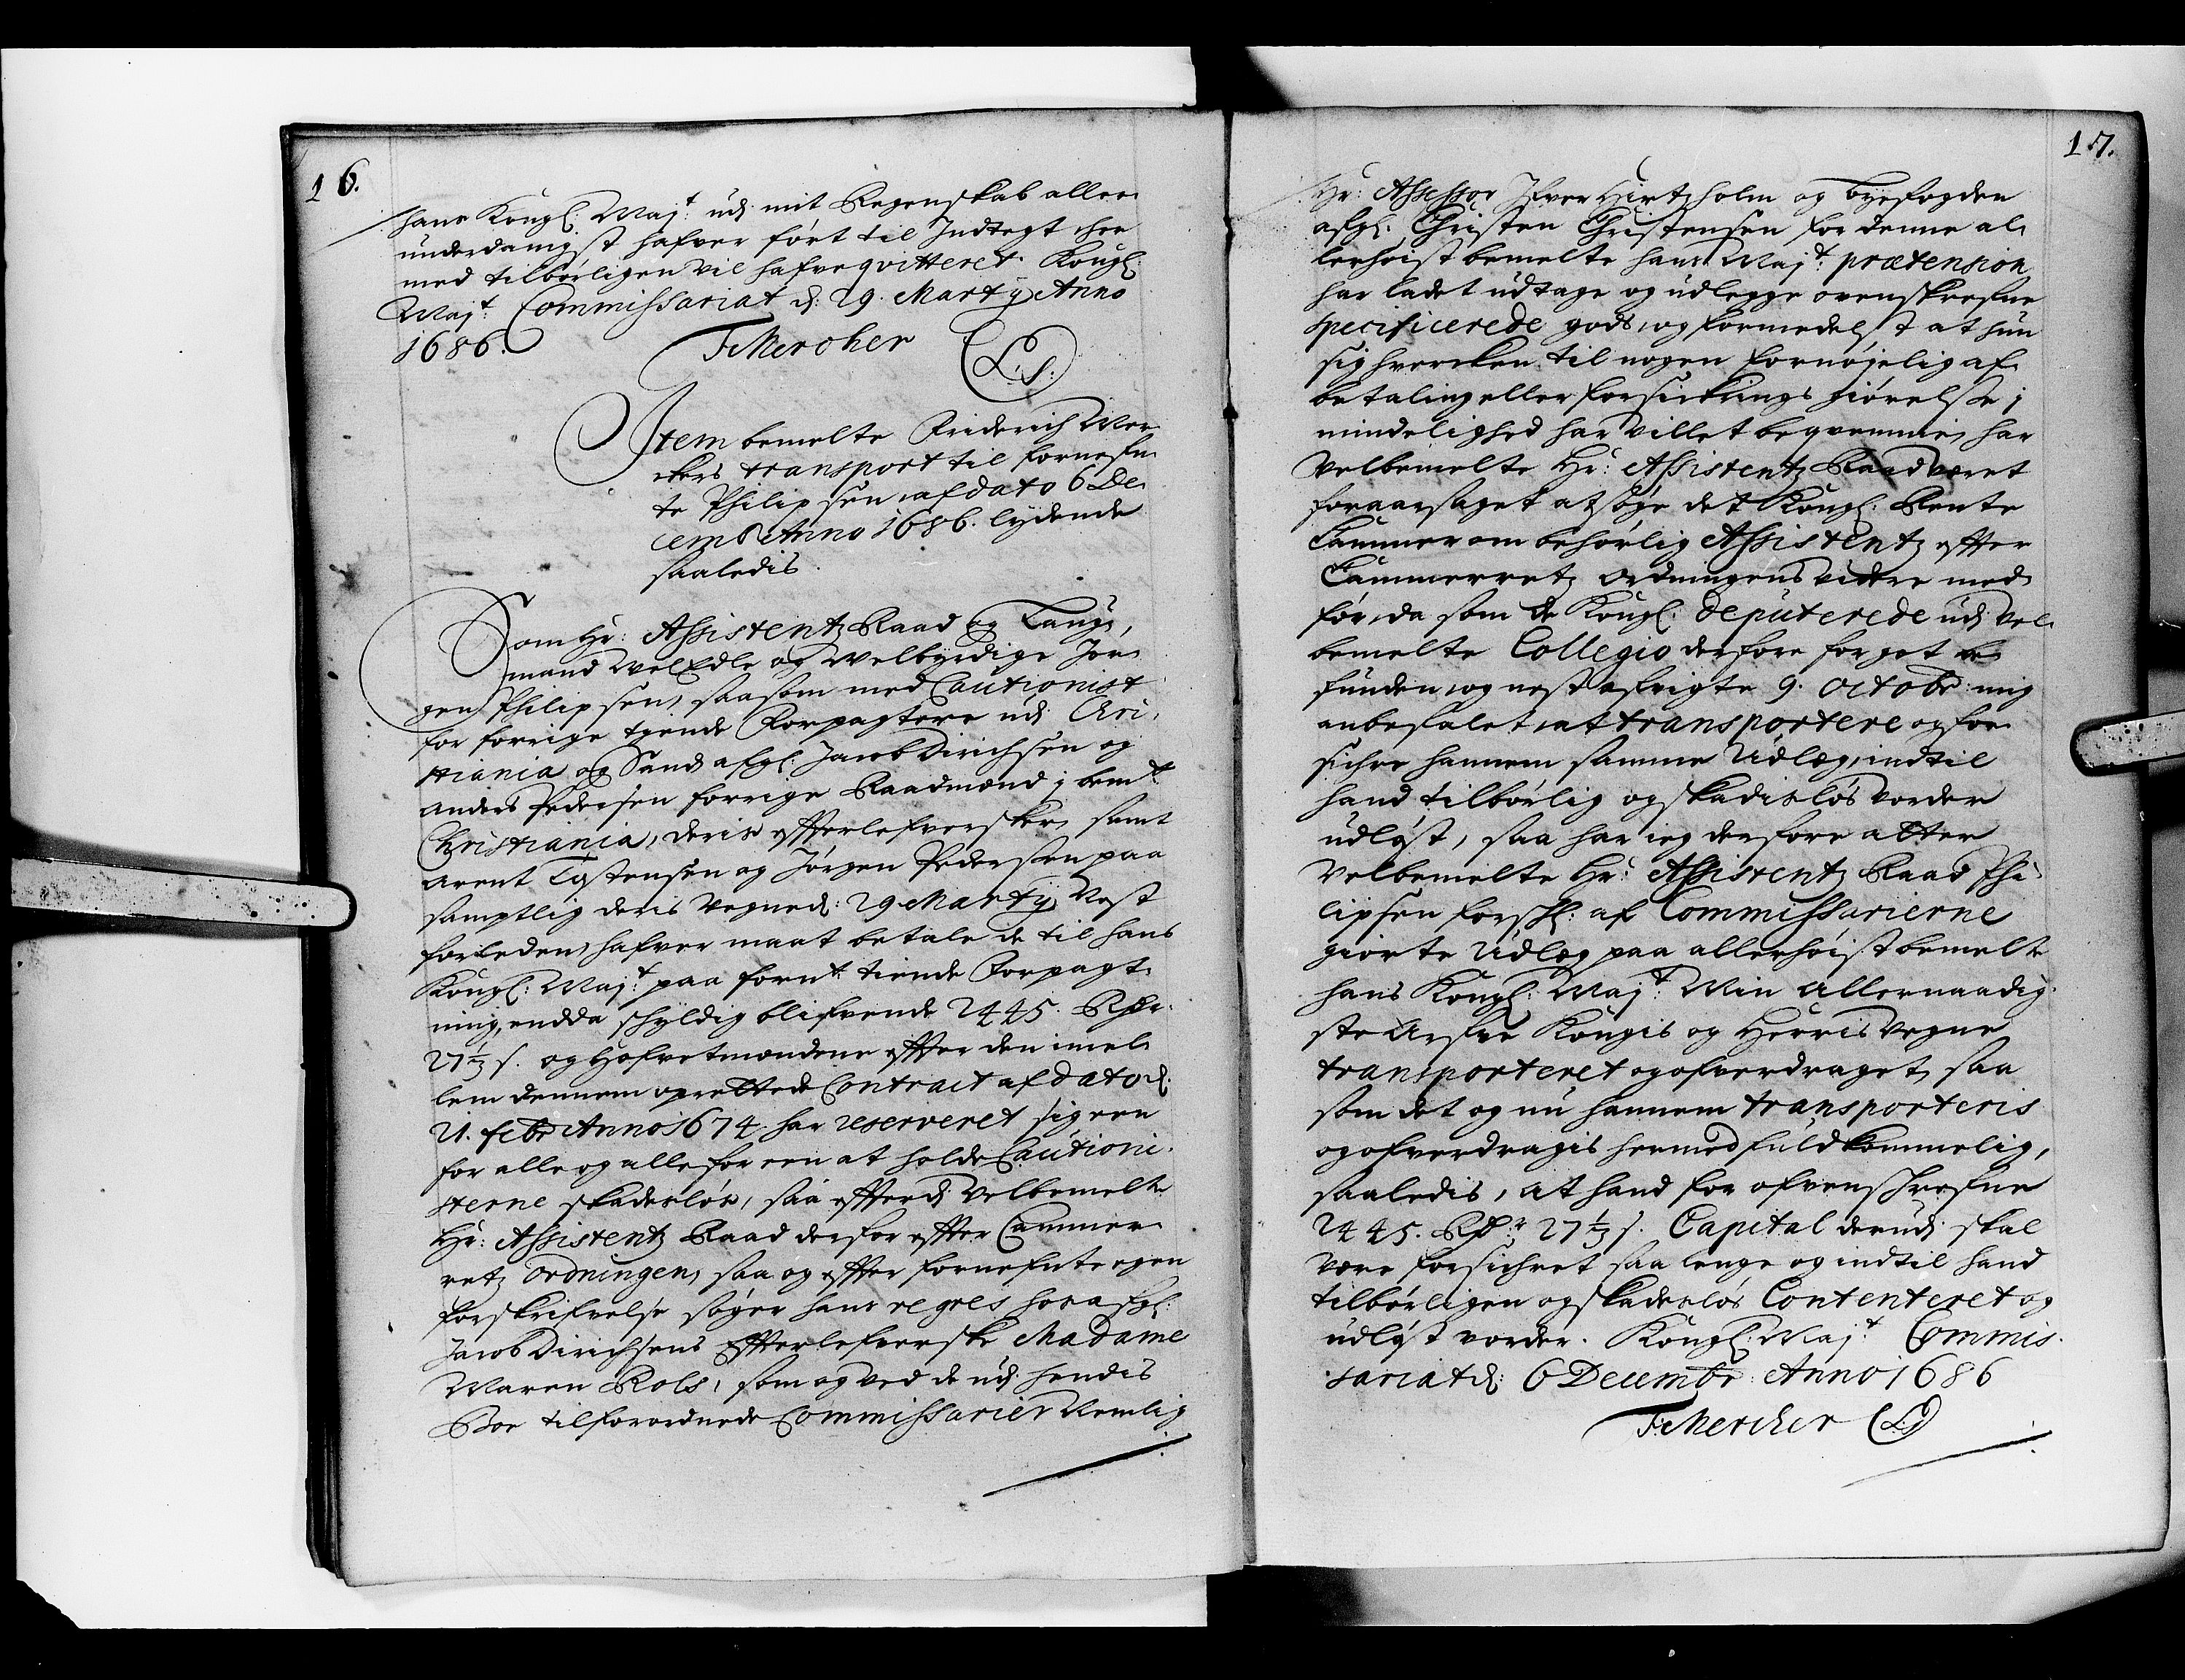 16.
hans Kongl: Maj:t udj mit Regenskab aller
underdanigst hafver fört til Indtegt her
med tilbörligen vil hafve qvitteret. Kongl:
Maj:t Commissariat d: 29. Marty Anno
1686.
F: Mercher (L.S.)
Item bemelte Friderich Mer
chers transport til fornefn
te Philipsen, af dato 6 De
cemb: Anno 1686. lydende
saaledis
Som Hr: Assistentz Raad og Laug,
mand WelEdle og Welbyrdige Jör
gen Philipsen, saasom med Cautionist
for forrige tiende Forpagtere udj Cri,
stiania og Land afgl: Jacob Dirichsen og
Anders Pedersen forrige Raadmænd j bem:te
Christiania, deris effterlefversker, samt
Arent Tostensen og Jörgen Pedersen paa
samptlig deris Vegne d: 29 Marty Nest
forleden, hafver maat betale de til hans
Kongl: Maj:t paa forn:te tiende Forpagt
ning, endda skyldig blifvende 2445. Rdr.
27½ s. og Hofvetmændene effter den imel
lem dennem oprettede Contract af dato d:
21. febr Anno 1674. har reserveret sig een
for alle og alle for een at holde Cautioni.
sterne skadeslös, saa efftersom velbemelte
Hr: Assistentz Raad derfor effter Cammer
retz Ordningen, saa og effter fornefnte egen
forskrifvelse söger hans regres hos afgl:
Jacob Dirichsens Effterlefverske Madame
Maren Rols, som og ved de udj hendis
Boe tilforordnede Commissarier Nemlig
17.
Hr: Assessor Ifver Hirtzholm og byefogden
afgl: Christen Christensen for denne al
lerhöist bemelte hans Maj:t prætension
har ladet udtage og udlegge ovenskrefne
specificerede gods, og formedelst at hun
sig hvercken til nogen fornöjelig af
betaling eller forsickrings giörelse j
mindelighed har villet beqvemme, har
Velbemelte Hr: Assistentz Raad været
foraarsaget at söge det Kongl: Rente
Cammer om behörlig Assistentz effter
Cammerretz Ordningens videre med
för, da som de Kongl: Deputerede udj Vel
bemelte Collegio derfore for got be
funden, og nest afvigte 9. Octobr: mig
anbefalet at transportere og for
sichre hannem samme Udleg, indtil
hand tilbörlig og skadislös vorder
udlöst, saa har ieg derfore atter
Velbemelte Hr: Assistentz Raad Phi
lipsen forschl: af Commissarierne
giorte Udleg paa allerhöistbemelte
hans Kongl: Maj:t Min Allernaadig
ste Arfve Kongis og Herris Vegne
transporteret og ofverdraget, saa
som det og nu hannem transporteris
og ofverdragis hermed fuldkommelig,
saaledis, at hand for ofvenskrefne
2445. Rdr 27½ s. Capital derudj skal
være forsichret saa lenge og indtil hand
tilbörligen og skadeslös Contenteret og
udlöst vorder. Kongl: Maj:t Commis.
sariat d: 6 Decembr: Anno 1686
F: Mercher (L.S)